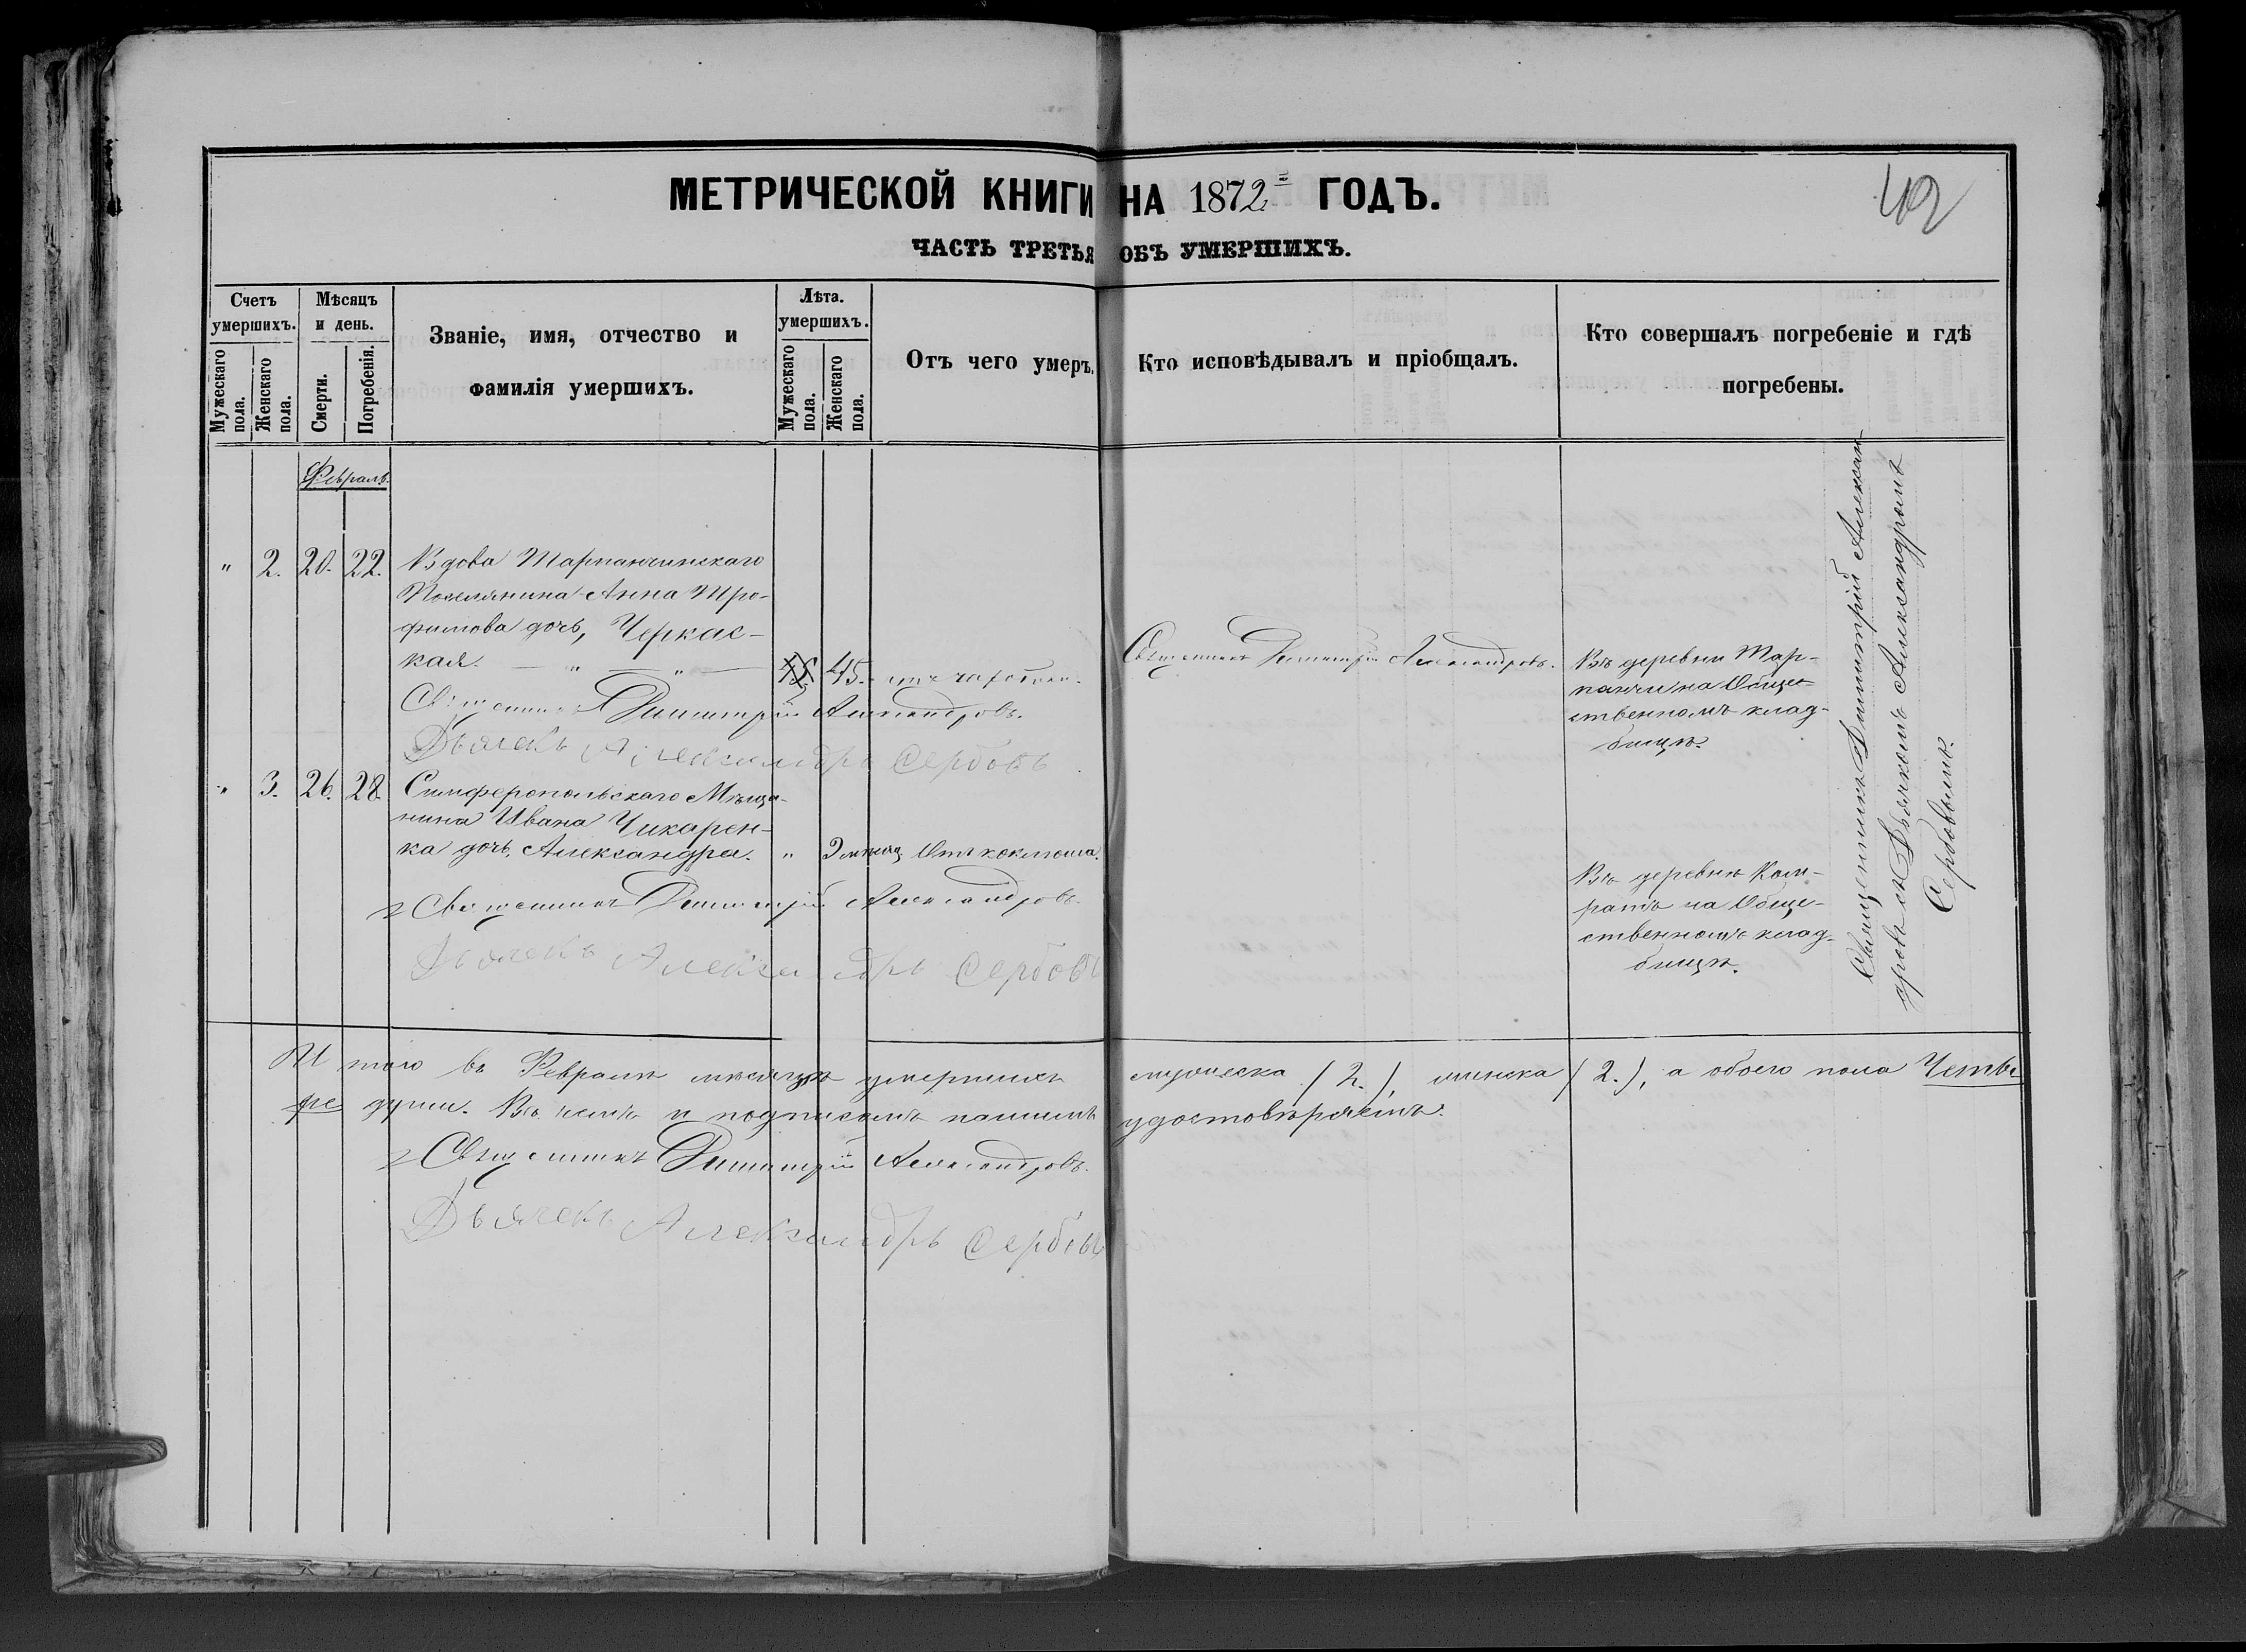 МЕТРИЧЕСКОЙ КНИГИ НА 1872 ГОДЪ.
42
ЧАСТЬ ТРЕТЬЯ ОБЪ УМЕРШИХЪ.
Счетъ умершихъ.
Мужескаго пола.
Женскаго пола.
Мѣсяцъ и день.
Смерти.
Погребенія.
Званіе, имя, отчество и
фамилія умершихъ.
Лѣта. умершихъ.
Мужескаго пола.
Женскаго пола.
Отъ чего умеръ.
Кто исповѣдывалъ и пріобщалъ.
Кто совершалъ погребеніе и гдѣ
погребены.
Февраль.
" 2. 20. 22. Вдова Тарпанчинскаго
Поселянина Анна Тро-
фимова дочь, Черкас-
кая. — " — " — 45. 45. отъ чахотки.
Священникъ Димитрій Александровъ.
Въ деревни Тар-
панчи на Обще-
ственномъ клад-
бищѣ.
Священникъ Димитрій Александровъ.
Дьячекъ Александръ Сербовъ
" 3. 26. 28. Симферопольскаго Мѣща-
нина Ивана Чикарен-
ка дочь, Александра. " Отъ коклюша.
Священникъ Димитрій Александровъ.
Дьячекъ Александръ Сербовъ
Въ деревнѣ Кам-
ратъ на Обще-
ственномъ клад-
бищѣ.
Священникъ Димитрій Алексан-
дровъ съ Дьячкомъ Александромъ
Сербовымъ.
Итого въ Февралѣ мѣсяцѣ умершихъ мужеска (2.), женска (2.), а обоего пола Четы
ре души. Въ чемъ и подписомъ нашимъ удостовѣряемъ.
Священникъ Димитрій Александровъ.
Дьячекъ Александръ Сербовъ